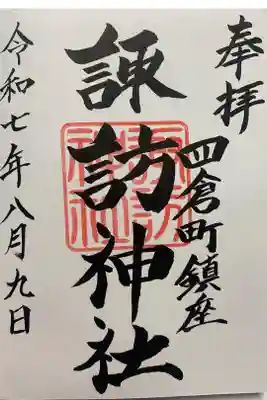 奉拝
四倉町鎮座
諏訪神社
諏訪神社
令和七年八月九日